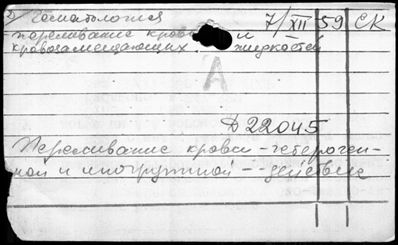 Гематология 7/XII 59 СК
переливание крови и
кровозамещающих жидкостей
А
Д 22045
Переливание крови - гетероген-
ной и иногрупной - действие